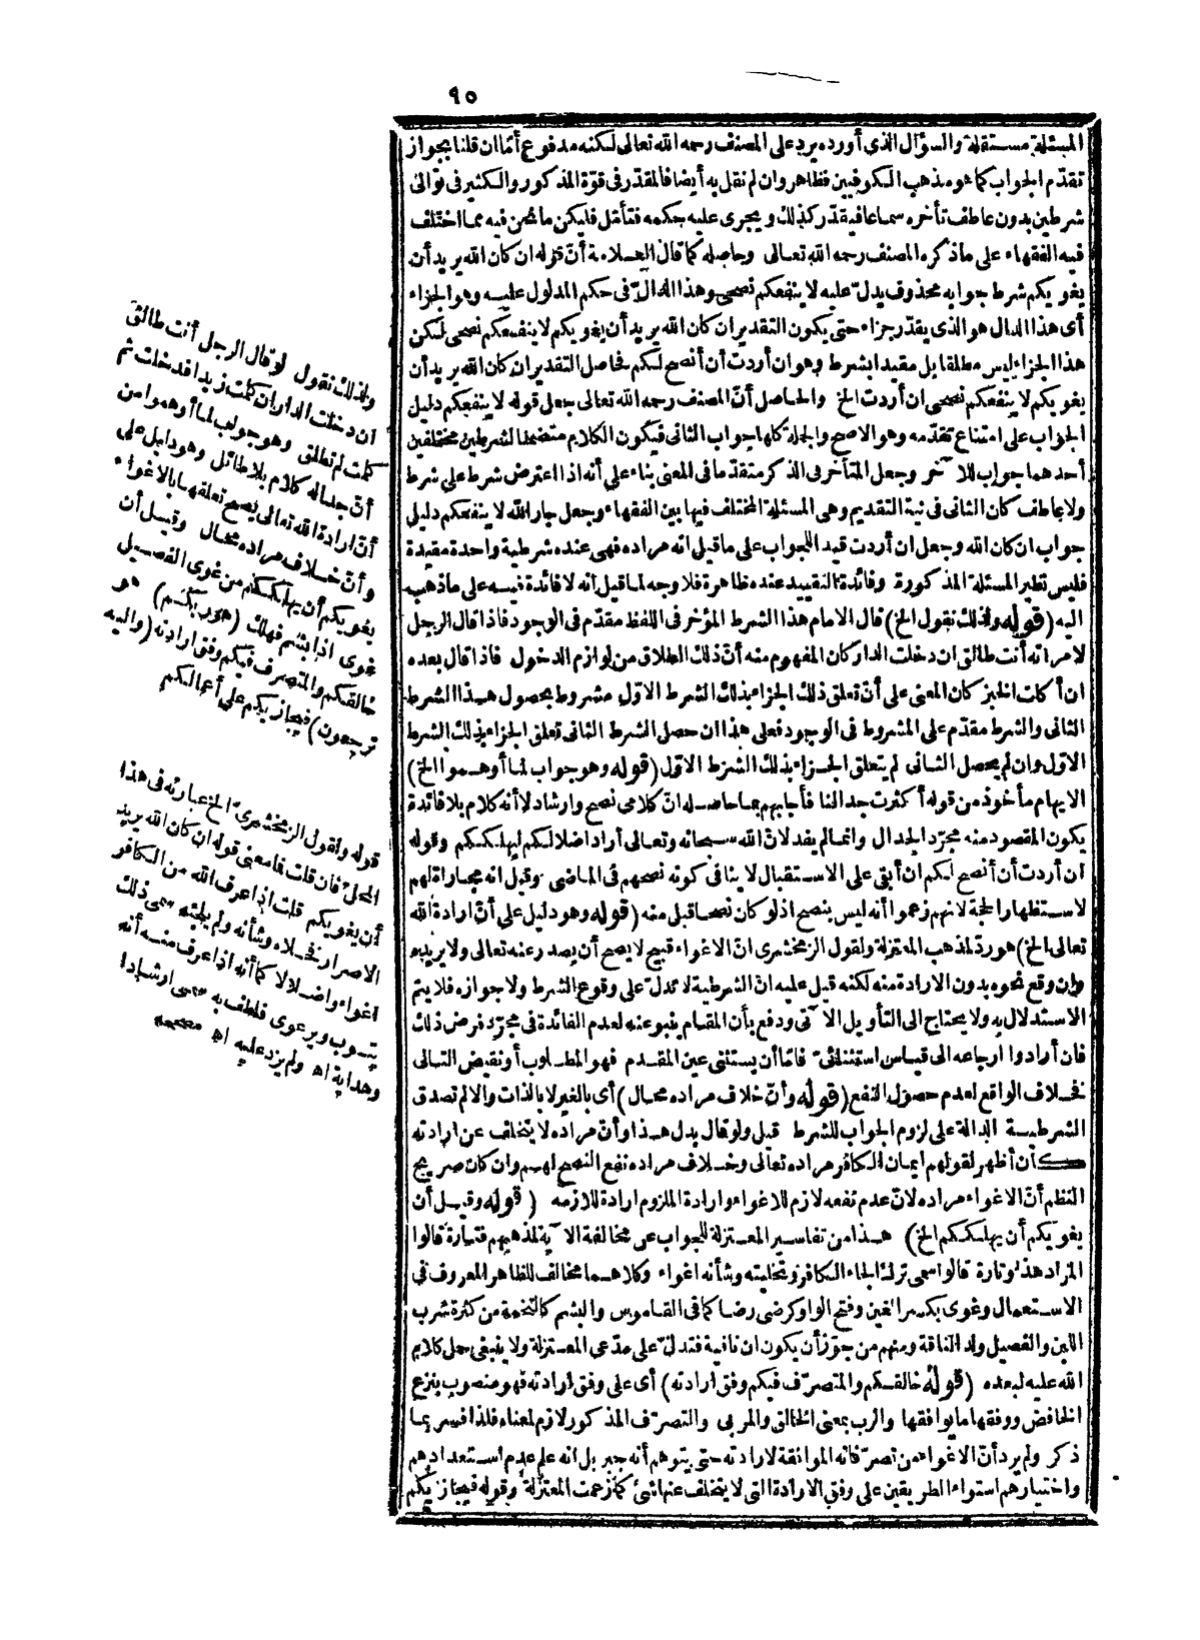 ٩٥
المسئلة مستقلة والسؤال الذي أورده يرد على المصنف رحمه الله تعالى لكنه مدفوع أمّا ان قلنا بجواز
تقدّم الجواب كما هو مذهب الكوفيين فظاهر وان لم نقل به أيضا فالمقدّر في قوّة المذكور والكثير في توالى
شرطين بدون عاطف تأخره سماعا فيقدّر كذلك ويجرى عليه حكمه فتأمّل فليكن ما نحن فيه مما اختلف
فيه الفقهاء على ما ذكره المصنف رحمه الله تعالى وحاصله كما قال العلامة أنّ قوله ان كان الله يريد أن
يغويكم شرط جوابه محذوف يدل عليه لا ينفعكم نصحى وهذا الدالّ في حكم المدلول عليه وهو الجزاء
أى هذا الدال هو الذى يقدّر جزاء حتى يكون التقدير ان كان الله يريد أن يغويكم لا ينفعكم نصحى لكن
هذا الجزاء ليس مطلقا بل مقيد ابشرط وهو ان أردت أن أنصح لكم فحاصل التقدير ان كان الله يريد أن
يغويكم لا ينفعكم نصحى ان أردت الخ والحاصل أنّ المصنف رحمه الله تعالى جعل قوله لا ينفعكم دليل
الجواب على امتناع تقدّمه وهو الاصح والجملة كلها جواب الثانى فيكون الكلام متضمنا لشرطين مختلفين
أحدهما جواب للآخر وجعل المتأخر فى الذكر متقدّما فى المعنى بناء على أنه اذا اعترض شرط على شرط
ولا عاطف كان الثانى فى نية التقديم وهى المسئلة المختلف فيها بين الفقهاء وجعل جار الله لا ينفعكم دليلى
جواب ان كان الله وجعل ان أردت قيد اللجواب على ما قيل انه مراده فهى عنده شرطية واحدة مقيدة
فليس نظير المسئلة المذكورة وفائدة التقييد عنده ظاهرة فلا وجه لما قيل انه لا فائدة فيه على ما ذهب
اليه (قوله ولذلك نقول الخ) قال الامام هذا الشرط المؤخر فى اللفظ مقدّم فى الوجود فاذا قال الرجل
لامرأته أنت طالق ان دخلت الدار كان المفهوم منه أنّ ذلك الطلاق من لوازم الدخول فاذا قال بعده
ان أكلت الخبز كان المعنى على أنّ تعلق ذلك الجزاء بذلك الشرط الاوّل مشروط بحصول هذا الشرط
الثانى والشرط مقدّم على المشروط فى الوجود فعلى هذا ان حصل الشرط الثانى تعلق الجزاء بذلك الشرط
الاوّل وان لم يحصل الثانى لم يتعلق الجزاء بذلك الشرط الاوّل (قوله وهو جواب لما أوهموا الخ)
الايهام مأخوذ من قوله أكثرت جدالنا فأجابهم بما حاصله انّ كلامى نصح وارشاد لا أنه كلام بلا فائدة
يكون المقصود منه مجرّد الجدال وانما لم يفد لانّ الله سبحانه وتعالى أراد اضلالكم ليهلككم وقوله
ان أردت أن أنصح لكم ان أبقى على الاستقبال لا ينافى كونه نصحهم فى الماضى وقيل انه مجاراة لهم
لاستظهار الحجة لانهم زعموا أنه ليس بنصح اذ لو كان نصحا قبل منه (قوله وهو دليل على أنّ ارادة الله
تعالى الخ) هو ردّ لمذهب المعتزلة ولقول الزمخشرى انّ الاغواء قبيح لا يصح أن يصدر عنه تعالى ولا يريده
وان وقع نحوه بدون الارادة منه لكنه قيل عليه انّ الشرطية لا تدل على وقوع الشرط ولا جوازه فلا يتم
الاستدلال به ولا يحتاج الى التأويل الآتى ودفع بأن المقام ينبو عنه لعدم الفائدة فى مجرّد فرض ذلك
فان أرادوا ارجاعه الى قياس استثنائىّ فامّا أن يستثنى عين المقدم فهو المطلوب أو نقيض التالى
فخلاف الواقع لعدم حصول النفع (قوله وأنّ خلاف مراده محال) أى بالغير لا بالذات والا لم تصدق
الشرطية الدالة على لزوم الجواب للشرط قيل ولو قال بدل هذا وأنّ مراده لا يتخلف عن ارادته
كان أظهر لقولهم ايمان الكافر مراده تعالى وخلاف مراده نفع النصح لهم وان كان صريح
النظم أنّ الاغواء مراده لانّ عدم نفعه لازم للاغواء وارادة الملزوم ارادة للازمه (قوله وقيل أن
يغويكم أن يهلككم الخ) هذا من تفاسير المعتزلة للجواب عن مخالفة الآية لمذهبهم فتارة قالوا
المراد هذا وتارة قالوا سمى ترك الجاء الكافر وتخليته وشأنه اغواء وكلاهما مخالف للظاهر المعروف فى
الاستعمال وغوى بكسر الغين وفتح الواو كرضى رضا كما فى القاموس والبشم كالتخمة من كثرة شرب
اللبن والفصيل ولد الناقة ومنهم من جوّز أن يكون ان نافية فتدلّ على مدّعى المعتزلة ولا ينبغى حمل كلام
الله عليه لبعده (قوله خالقكم والمتصرّف فيكم وفق ارادته) أى على وفق ارادته فهو منصوب بنزع
الخافض ووفقها ما يوافقها والرب بمعنى الخالق والمربى والتصرّف المذكور لازم لمعناه فلذا فسر بما
ذكر ولم يرد أنّ الاغواء من تصرّفاته الموافقة لارادته حتى يتوهم أنه جبر بل انه علم عدم استعدادهم
واختيارهم استواء الطريقين على وفق الارادة التى لا يتخلف عنها شئ كما زعمت المعتزلة وقوله فيجازيكم
ولذلك نقول لو قال الرجل أنت طالق
ان دخلت الدار ان كلمت زيدا فدخلت ثم
كلمت لم تطلق وهو جواب لما أوهموا من
أنّ جداله كلام بلا طائل وهو دليل على
أنّ ارادة الله تعالى يصح تعلقها بالاغواء
وأنّ خلاف مراده محال وقيل أن
يغويكم أن يهلككم من غوى الفصيل
غوى اذا بشم فهلك (هو ربكم) هو
خالقكم والمتصرف فيكم وفق ارادته (واليه
ترجعون) فيجازيكم على أعمالكم
قوله ولقول الزمخشرىّ الخ عبارته فى هذا
المحل فان قلت فما معنى قوله ان كان الله يريد
أن يغويكم قلت اذا عرف الله من الكافر
الاصرار فخلاه وشأنه ولم يلجئه سمى ذلك
اغواء واضلالا كما أنه اذا عرف منه أنه
يتوب ويرعوى فلطف به سمى ارشادا
وهداية اه ولم يزد عليه اه مصححه